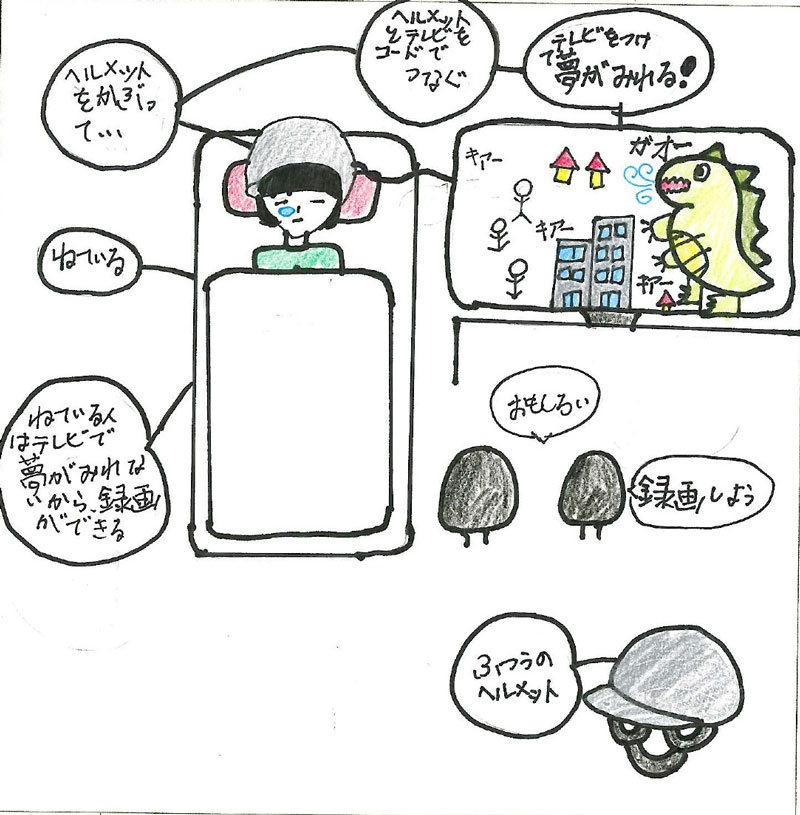 ヘルメット
をかぶっ
て...
ヘルメット
とテレビを
コードで
つなぐ
テレビをつけ
て夢がみれる!
キァー
ガオー
キァー
キァー
ねている
ねている人
はテレビで
夢がみれな
いから、録画
ができる
おもしろい
録画しよう
ふつうの
ヘルメット